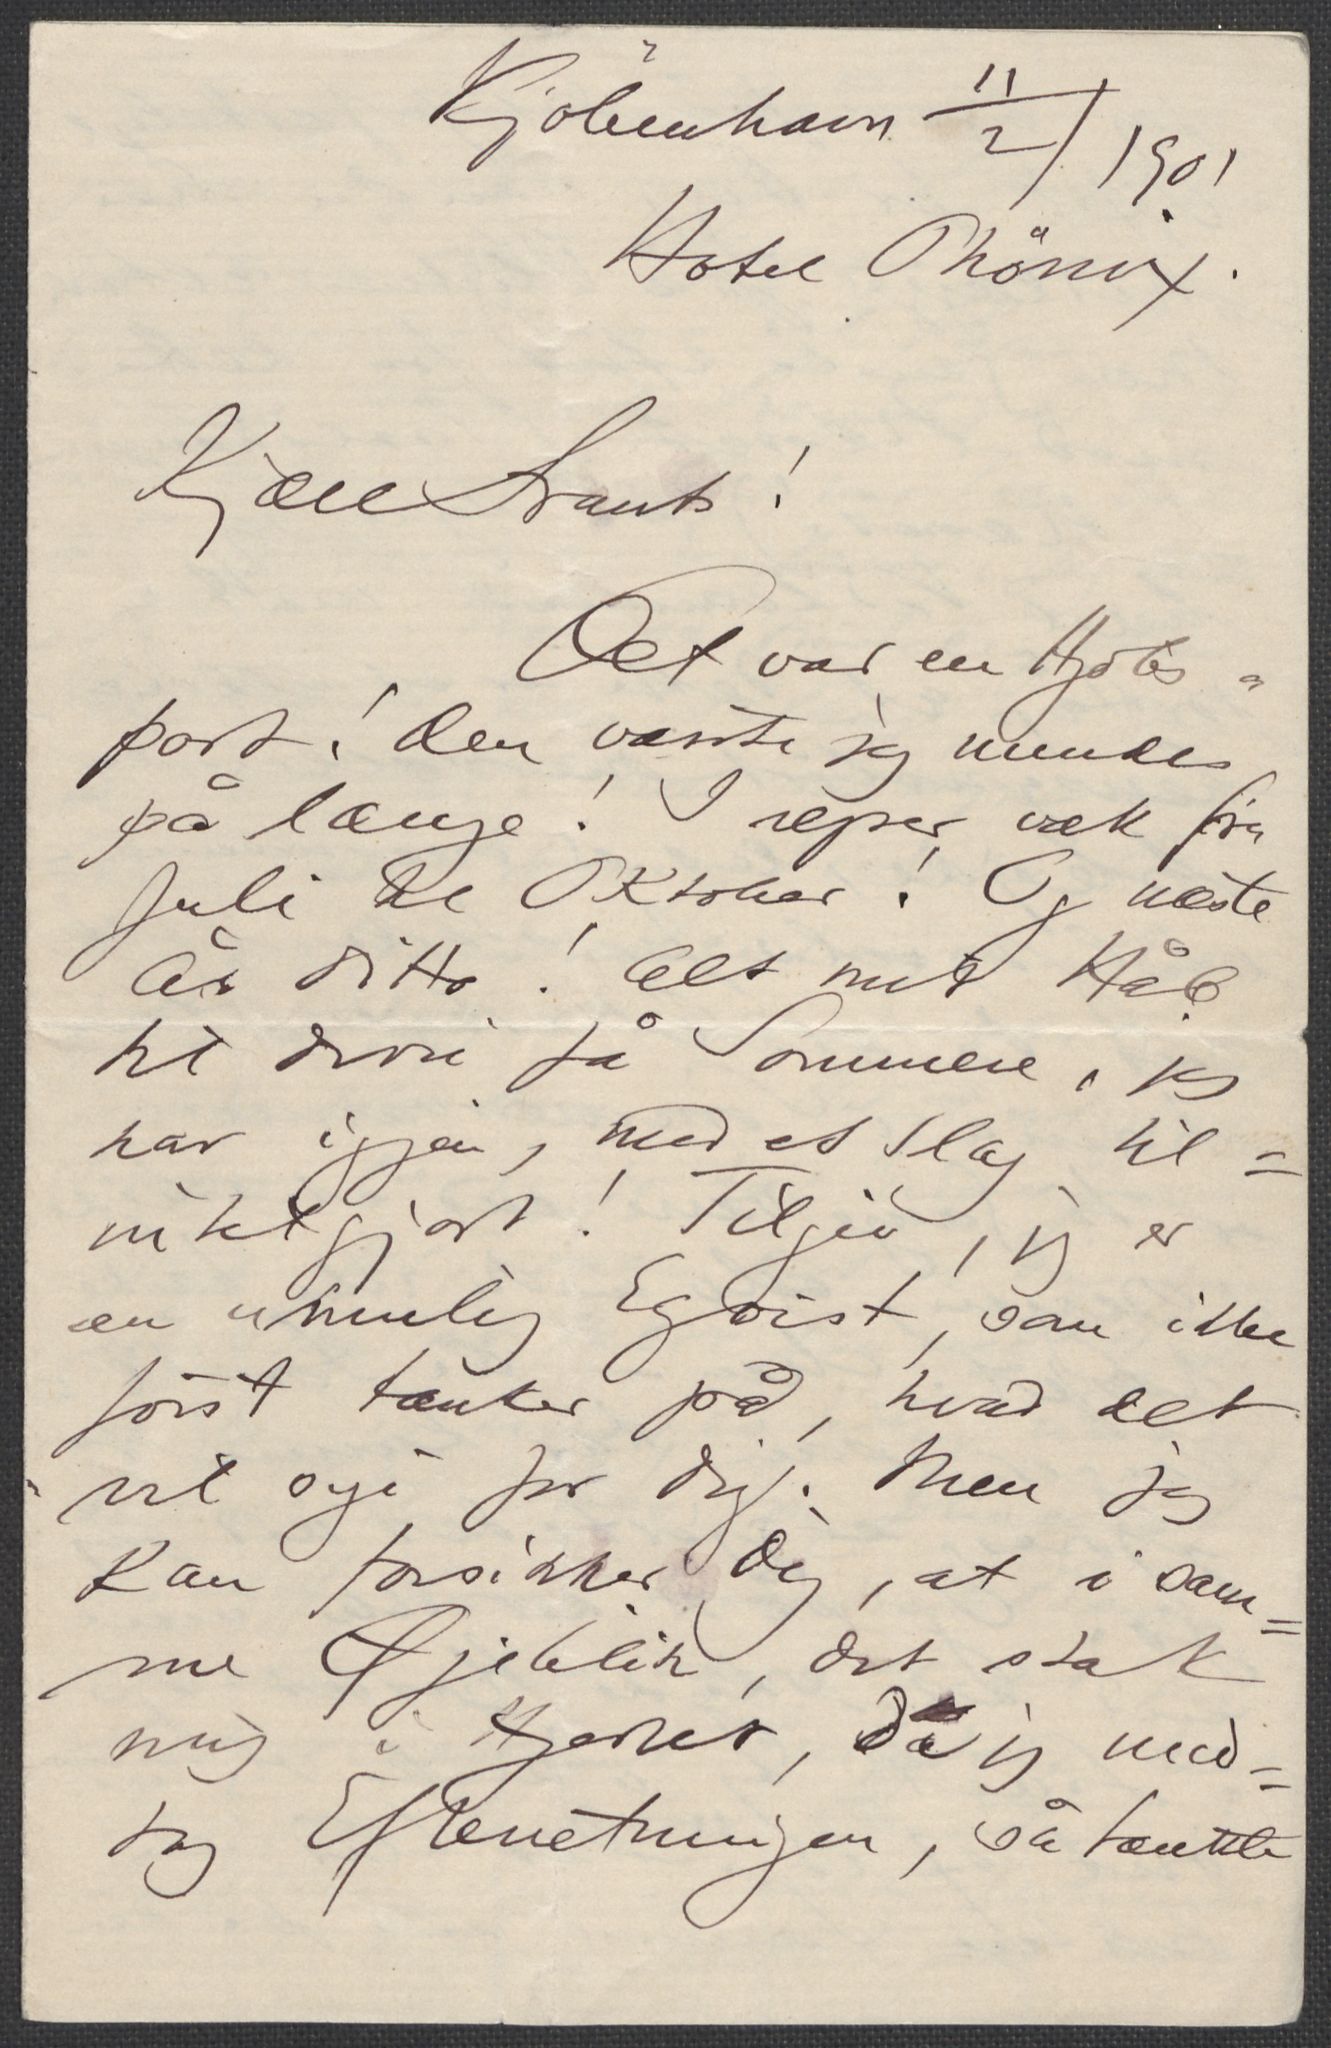 Kjöbenhavn 11/2 1901
Hotel Phönix.
Kjære Frants!
Det var en Hjobs=
post! Den værste jeg mindes
på længe! I rejser væk fra
Juli til Oktober! Og næste
År ditto! Alt mit Håb
til disse få Sommere, jeg
har igjen, med et Slag til=
intetgjort! Tilgiv, jeg er
en umulig Egoist, som ikke
først tænker på, hvad det
vil sige for dig. Men jeg
kan forsikker Dig, at i sam=
me Øjeblik, det stak
mig i Hjertet, da jeg mod=
tog Efterretningen, så tænkte